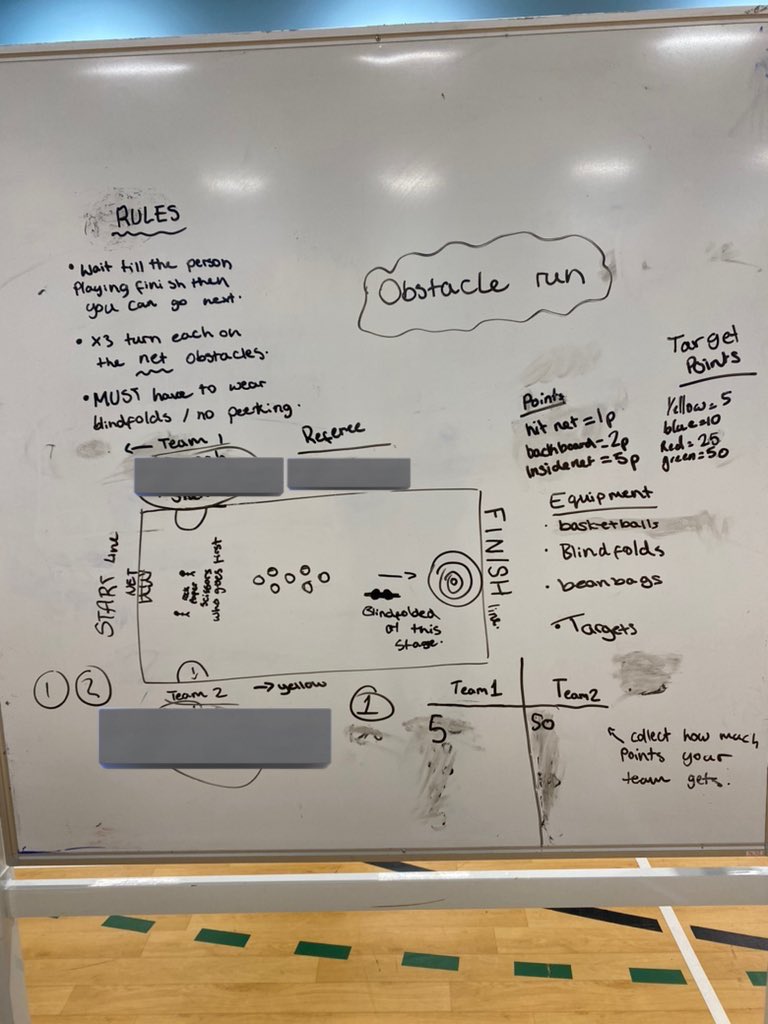 RULES
• Wait till the person
Playing finish then
you can go next.
• x3 turn each on
the net obstacles.
• MUST have to wear
blindfolds / no peeking.
Obstacle run
Target
Points
Yellow = 5
blue = 10
Red = 25
green = 50
Points
hit net = 1p
backboard = 2p
Inside net = 5p
← Team 1
Referee
Equipment
• basketballs
• Blindfolds
• beanbags
• Targets
START Line
NET
Rock
Paper
Scissors
who goes first
→
Blindfolded
at this
stage.
FINISH line.
1 2
Team 2 → yellow
1
Team 1 Team 2
5 50
↖ collect how much
Points your
team gets.